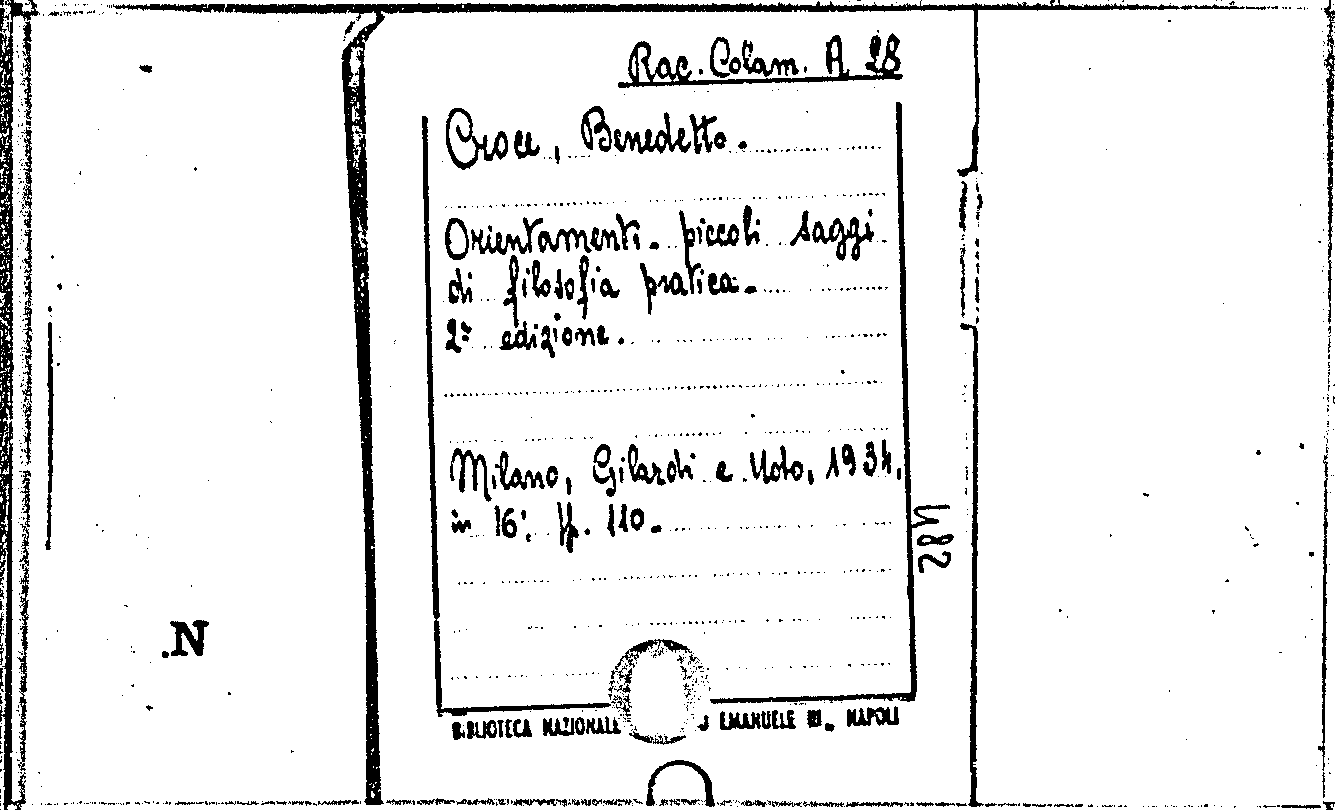 Rac. Colam. A 28
Croce, Benedetto.
Orientamenti. piccoli saggi
di filosofia pratica.
2ª edizione.
Milano, Gilardi e Noto, 1934.
in 16º. pp. 110.
482
.N
BIBLIOTECA NAZIONALE EMANUELE III. NAPOLI